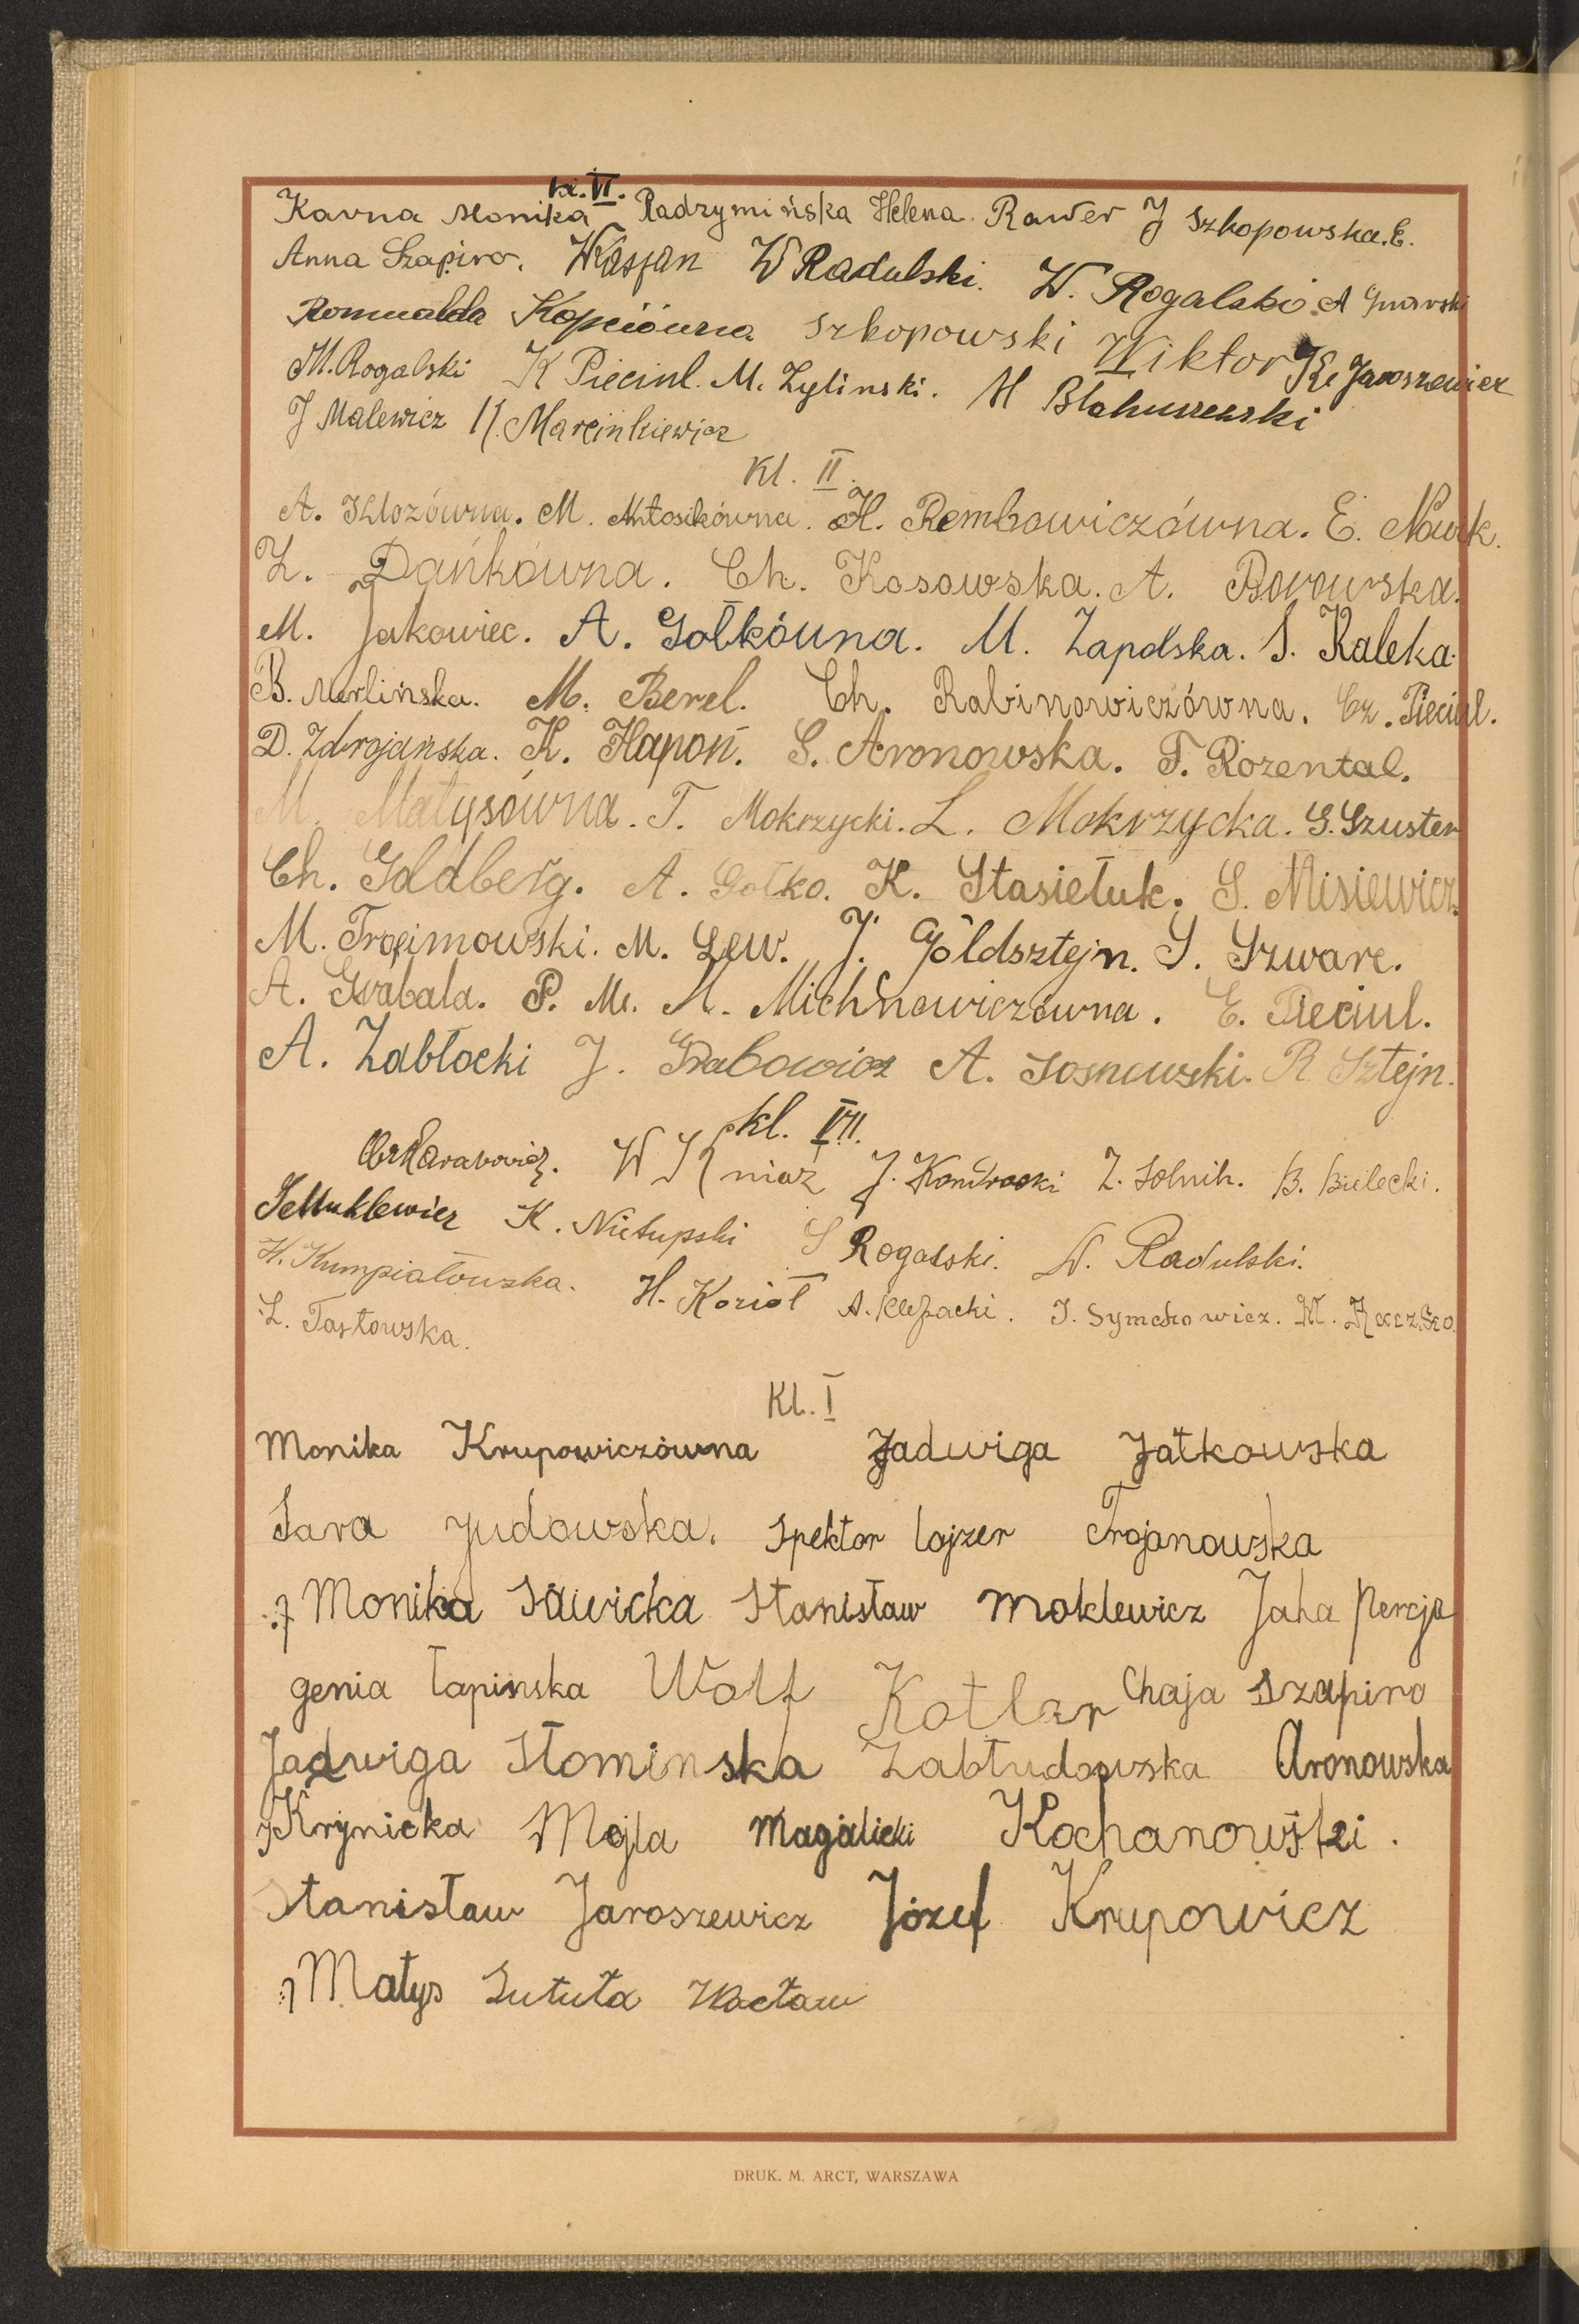 kl. VI.
Kavna Monika Radzymińska Helena. Rawer J Szkopowska. E.
Anna Szapiro. Kasjan W Radulski. W. Rogalski A
Romualda Kopciówna Szkopowski Wiktor K. Jaroszewicz
M. Rogalski K Pieciul. M. Zylinski. H
J Malewicz H. Marcinkiewicz
Kl. II.
A. M. Antosikówna. H. Rembowiczówna. E. Nowik.
Z. Dańkówna. Ch. Kosowska. A. Borowska.
M. Jakowiec. A. Gołkówna. M. Zapolska. S. Kaleka.
B. Merlińska. M. Berel. Ch. Rabinowiczówna. Cz. Pieciul.
D. Zdrojańska. K. Hapoń. S. Aronowska. F. Rozental.
M. Matysówna. T. Mokrzycki. L. Mokrzycka. G. Szuster
Ch. Goldberg. A. Gołko. K. Stasieluk. S. Misiewicz.
M. Trocimowski. M. Lew. J. Goldsztejn. S. Szwarc.
A. Grabala. P. M. Michnowiczówna. E. Pieciul.
A. Zabłocki J. Grabowicz A. Sosnowski. R Sztejn.
kl. VII.
W Kniaź J. Kondracki Z. Solnik. B. Bielecki.
K. Nietupski S Rogalski. W. Radulski.
H. Kumpiałowska. H. Kozioł A. Klepacki. I. Symchowicz. M.
L. Tastowska.
Kl. I
Monika Krupowiczówna Jadwiga Jatkowska
Sara Judowska. Spektor Lojzer Trojanowska
Monika Sawicka Stanisław Moklewicz Jaha Percja
genia Łapinska Wolf Kotler Chaja Szapiro
Jadwiga Słominska Zabłudowska Aronowska
Krynicka Mejla Magalicki Kochanowski.
Stanisław Jaroszewicz Józef Krupowicz
Matys Sutuła Wacław
DRUK. M. ARCT, WARSZAWA